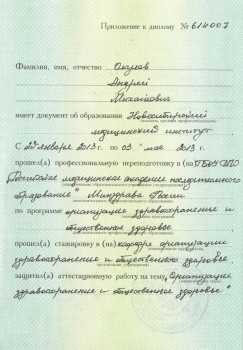 Приложение к диплому № 614007
Фамилия, имя, отчество Окулов
Андрей
Михайлович
имеет документ об образовании Новосибирский
медицинский институт
С 22 января 2013 г. по 03 мая 2013 г.
прошел(а) профессиональную переподготовку в (на) ГБОУ ДПО
Российская медицинская академия последипломного
образования" Минздрава России
по программе организация здравоохранения и
общественное здоровье
прошел(а) стажировку в (на) кафедре организации
здравоохранения и общественного здоровья
защитил(а) аттестационную работу на тему "Организация
здравоохранения и общественное здоровье"